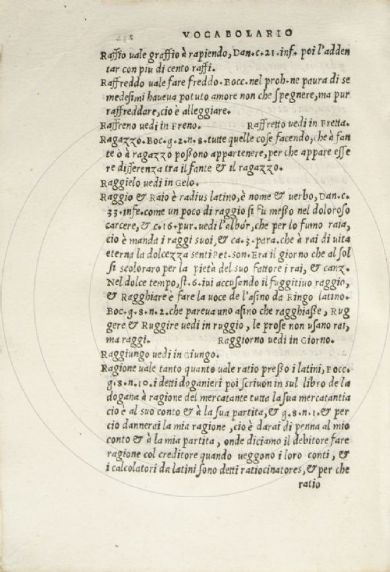 VOCABOLARIO
Raffio vale graffio à rapiendo, Dan.c.21.inf. poi l'adden
tar con piu di cento raffi.
Raffreddo vale fare freddo. Bocc. nel proh. ne paura di se
medesimi haueua potuto amore non che spegnere, ma pur
raffreddare, cio è alleggiare.
Raffreno uedi in Freno. Raffretto uedi in Fretta.
Ragazzo. Boc.g.2.n.8. tutte quelle cose facendo, che à fan
te ò à ragazzo possono appartenere, per che appare esse
re differenza tra il fante & il ragazzo.
Raggielo uedi in Gelo.
Raggio & Raio è radius latino, è nome & uerbo, Dan.c.
33.infe. come un poco di raggio si fu messo nel doloroso
carcere, & c.16.pur. uedi l'albòr, che per lo fumo raia,
cio è manda i raggi suoi, & ca.3.para. che à rai di uita
eterna la dolcezza senti Pet.son. Era il giorno che al sol
si scoloraro per la pietà del suo fattore i rai, & canz.
Nel dolce tempo, st.6. iui accusando il fuggitiuo raggio,
& Ragghiare è fare la uoce de l'asino da Ringo latino.
Boc.g.8.n.2. che pareua uno asino che ragghiasse, Rug
gere & Ruggire uedi in ruggio, le prose non usano rai,
ma raggi. Raggiorno uedi in Giorno.
Raggiungo uedi in Giungo.
Ragione uale tanto quanto uale ratio presso i latini, Bocc.
g.8.n.10. i detti doganieri poi scriuon in sul libro de la
dogana à ragione del mercatante tutta la sua mercatantia
cio è al suo conto & à la sua partita, & g.8.n.1. & per
cio dannerai la mia ragione, cio è darai di penna al mio
conto & à la mia partita, onde diciamo il debitore fare
ragione col creditore quando ueggono i loro conti, &
i calcolatori da latini sono detti ratiocinatores, & per che
ratio